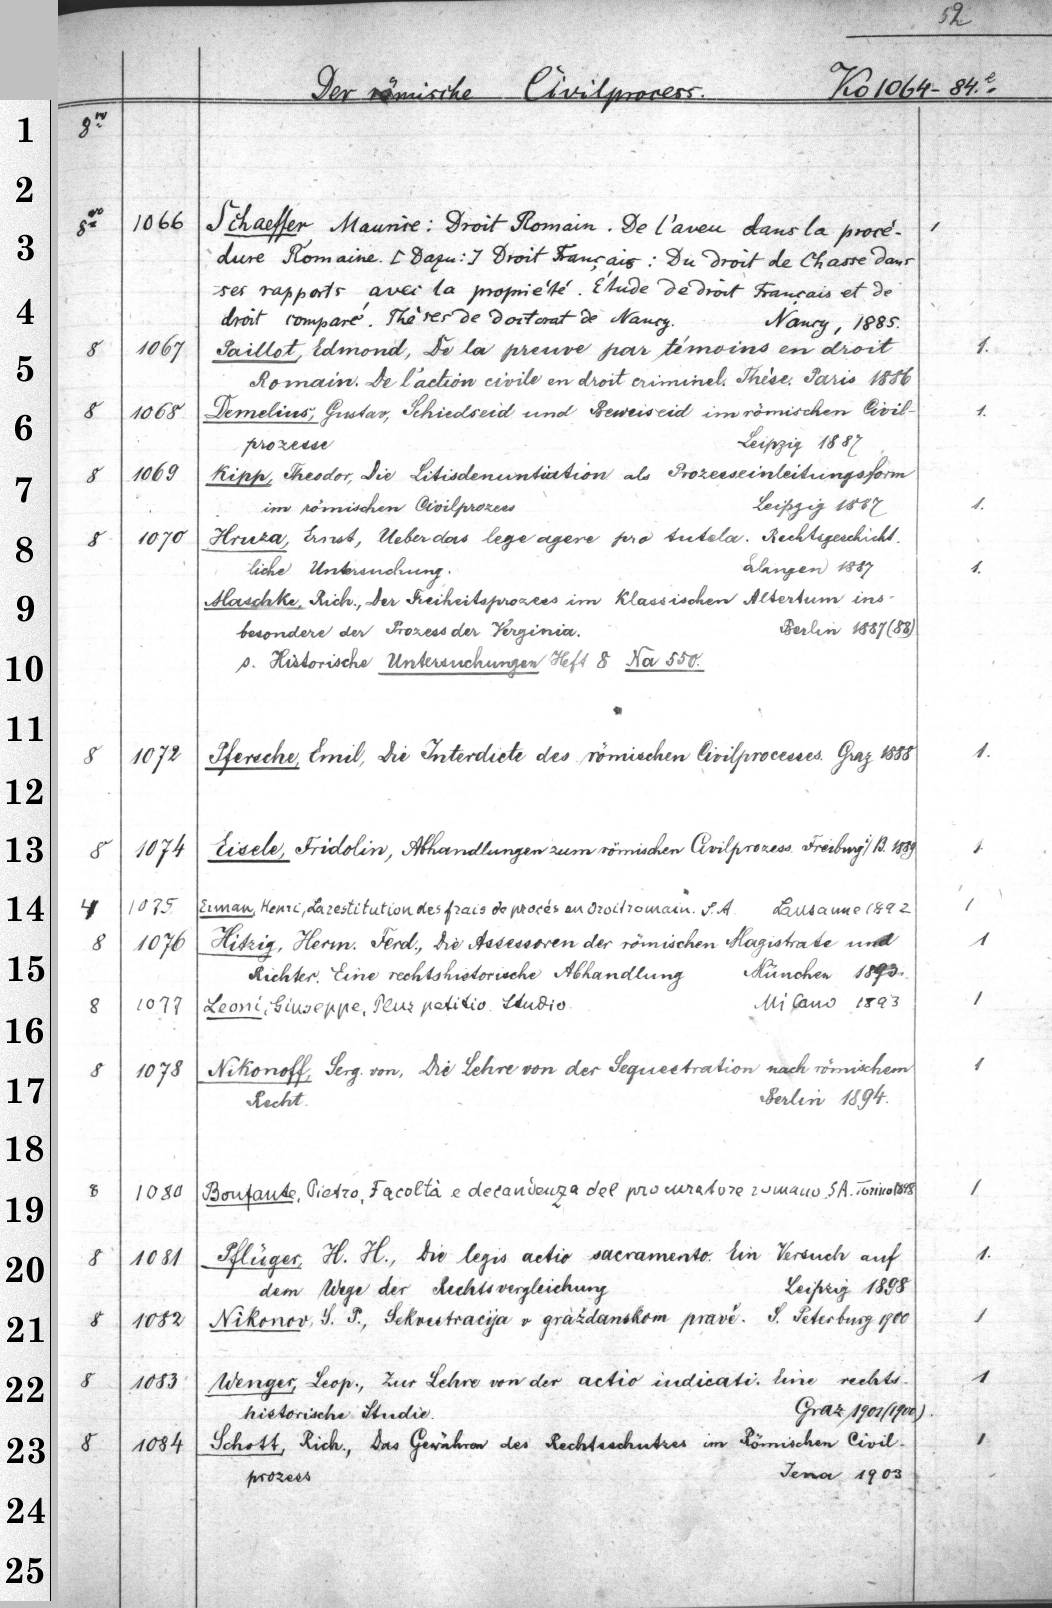 52
Der römische Civilprocess. Ko 1064-84.e
1 8vo
2
8vo 1066 Schaeffer Maurice: Droit Romain. De l'aveu dans la procé- 1
3 dure Romaine. [Dazu:] Droit Français: Du droit de Chasse dans
4 ses rapports avec la propriété. Étude de droit Français et de
droit comparé. Thèses de doctorat de Nancy. Nancy, 1885.
5 8 1067 Paillot, Edmond, De la preuve par témoins en droit 1.
Romain. De l'action civile en droit criminel. Thèse. Paris 1886
6 8 1068 Demelius, Gustav, Schiedseid und Beweiseid im römischen Civil- 1.
prozesse Leipzig 1887
7 8 1069 Kipp, Theodor, Die Litisdenuntiation als Prozesseinleitungsform
im römischen Civilprozess Leipzig 1887 1.
8 8 1070 Hruza, Ernst, Ueber das lege agere pro tutela. Rechtsgeschicht.
liche Untersuchung. Erlangen 1887 1.
9 Maschke, Rich., Der Freiheitsprozess im klassischen Altertum ins-
besondere der Prozess der Verginia. Berlin 1887(88)
10 s. Historische Untersuchungen Heft 8 Na 550.
11
8 1072 Pfersche, Emil, Die Interdicte des römischen Civilprocesses. Graz 1888 1.
12
13 8 1074 Eisele, Fridolin, Abhandlungen zum römischen Civilprozess. Freiburg i/B. 1889 1
14 4 1075 Erman, Henri, La restitution des frais de procès en droit romain. S.A. Lausanne 1892 1
8 1076 Hitzig, Herm. Ferd., Die Assessoren der römischen Magistrate und 1
15 Richter. Eine rechtshistorische Abhandlung München 1893.
8 1077 Leoni, Giuseppe, Plus petitio. Studio. Milano 1893 1
16
8 1078 Nikonoff, Serg. von, Die Lehre von der Sequestration nach römischem 1
17 Recht. Berlin 1894.
18
19 8 1080 Bonfante, Pietro, Facoltà e decandenza del procuratore romano. S.A. Torino 1898 1
8 1081 Pflüger, H. H., Die legis actio sacramento. Ein Versuch auf 1.
20 dem Wege der Rechtsvergleichung Leipzig 1898
21 8 1082 Nikonov, S. P., Sekvestracija v graždanskom pravě. S. Peterburg 1900 1
22 8 1083 Wenger, Leop., Zur Lehre von der actio iudicati. Eine rechts- 1
historische Studie. Graz 1901(1900).
23 8 1084 Schott, Rich., Das Gewähren des Rechtsschutzes im Römischen Civil- 1
prozess Jena 1903
24
25